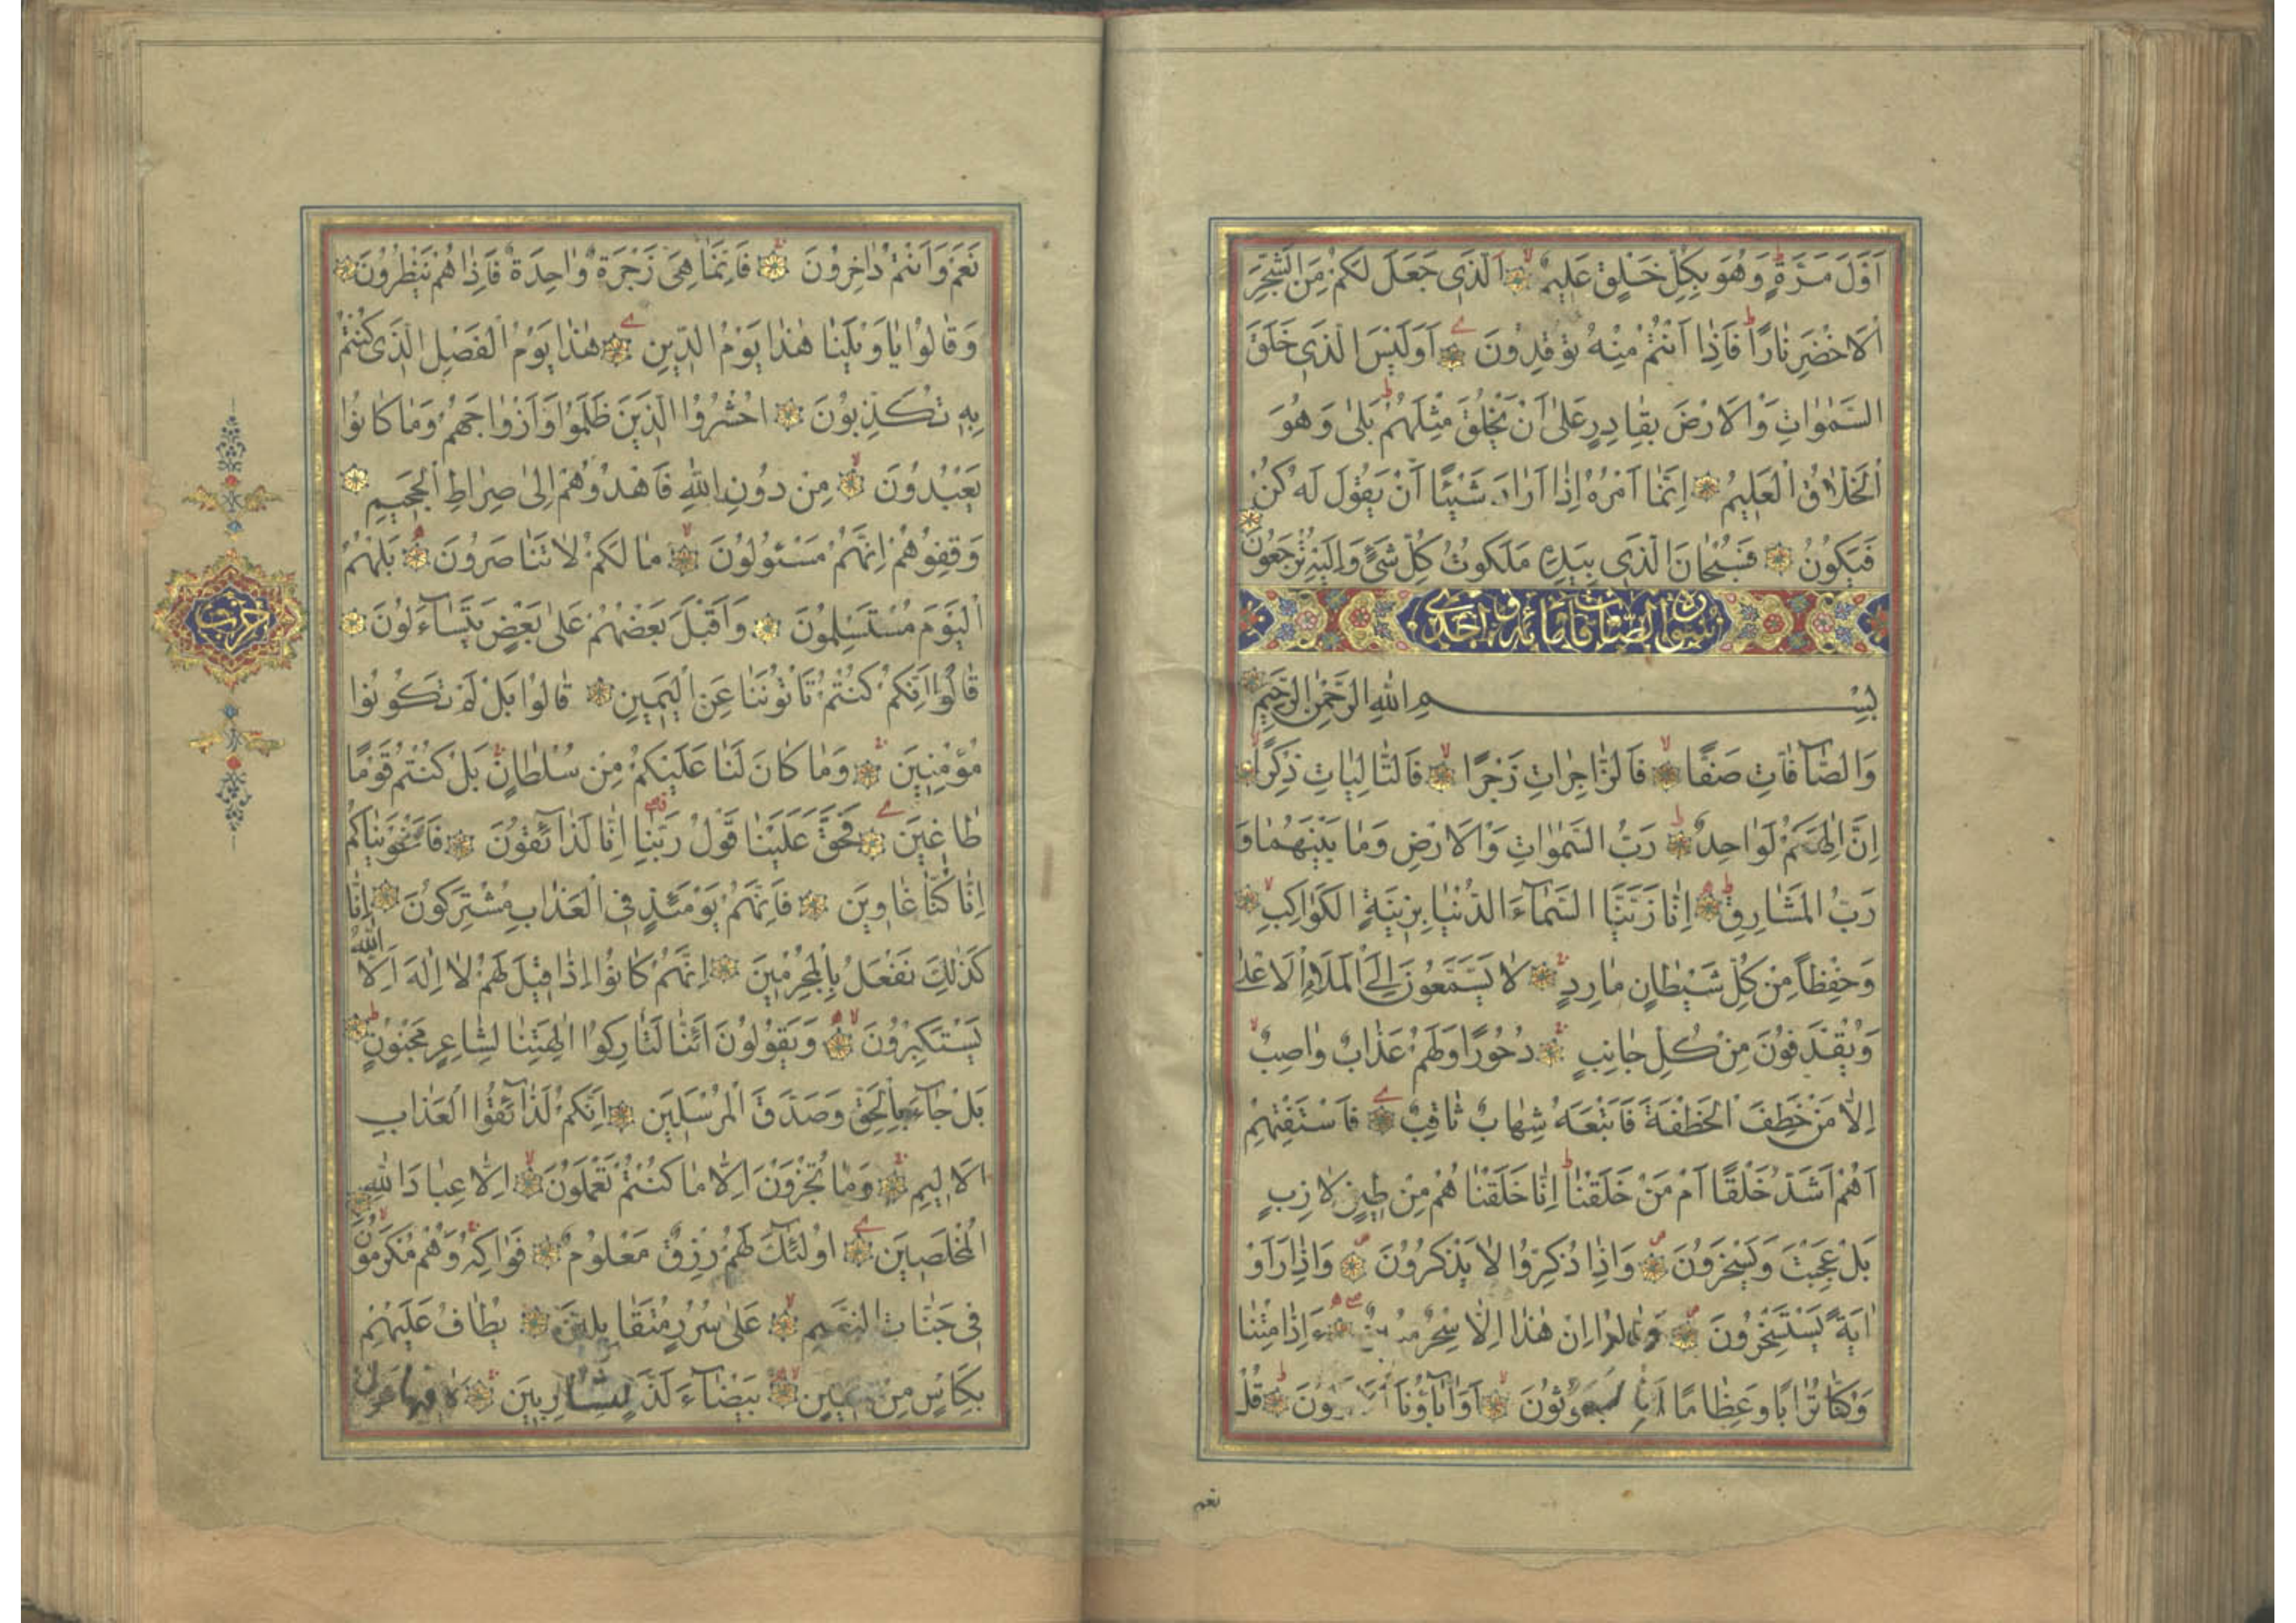 اَوَّلَ مَرَّةٍ وَهُوَ بِكُلِّ خَلْقٍ عَلِيمٌ اَلَّذِى جَعَلَ لَكُمْ مِنَ الشَّجَرِ
الْاَخْضَرِ نَارًا فَاِذَا اَنْتُمْ مِنْهُ تُوقِدُونَ اَوَلَيْسَ الَّذِى خَلَقَ
السَّمٰوَاتِ وَالْاَرْضَ بِقَادِرٍ عَلٰى اَنْ يَخْلُقَ مِثْلَهُمْ بَلٰى وَهُوَ
الْخَلَّاقُ الْعَلِيمُ اِنَّمَا اَمْرُهُ اِذَا اَرَادَ شَيْئًا اَنْ يَقُولَ لَهُ كُنْ
فَيَكُونُ فَسُبْحَانَ الَّذِى بِيَدِهِ مَلَكُوتُ كُلِّ شَىْءٍ وَاِلَيْهِ تُرْجَعُونَ
بِسْمِ اللّٰهِ الرَّحْمٰنِ الرَّحِيمِ
وَالصَّآفَّاتِ صَفًّا فَالزَّاجِرَاتِ زَجْرًا فَالتَّالِيَاتِ ذِكْرًا
اِنَّ اِلٰهَكُمْ لَوَاحِدٌ رَبُّ السَّمٰوَاتِ وَالْاَرْضِ وَمَا بَيْنَهُمَا وَ
رَبُّ الْمَشَارِقِ اِنَّا زَيَّنَّا السَّمَآءَ الدُّنْيَا بِزِينَةٍ الْكَوَاكِبِ
وَحِفْظًا مِنْ كُلِّ شَيْطَانٍ مَارِدٍ لَا يَسَّمَّعُونَ اِلَى الْمَلَاِ الْاَعْلٰى
وَيُقْذَفُونَ مِنْ كُلِّ جَانِبٍ دُحُورًا وَلَهُمْ عَذَابٌ وَاصِبٌ
اِلَّا مَنْ خَطِفَ الْخَطْفَةَ فَاَتْبَعَهُ شِهَابٌ ثَاقِبٌ فَاسْتَفْتِهِمْ
اَهُمْ اَشَدُّ خَلْقًا اَمْ مَنْ خَلَقْنَا اِنَّا خَلَقْنَا هُمْ مِنْ طِينٍ لَازِبٍ
بَلْ عَجِبْتَ وَيَسْخَرُونَ وَاِذَا ذُكِّرُوا لَا يَذْكُرُونَ وَاِذَا رَاَوْ
اٰيَةً يَسْتَسْخِرُونَ وَقَالُوا اِنْ هٰذَا اِلَّا سِحْرٌ ءَاِذَا مِتْنَا
وَكُنَّا تُرَابًا وَعِظَامًا اَوَاٰبَآؤُنَا قُلْ
نعم
نَعَمْ وَاَنْتُمْ دَاخِرُونَ فَاِنَّمَا هِىَ زَجْرَةٌ وَاحِدَةٌ فَاِذَا هُمْ يَنْظُرُونَ
وَقَالُوا يَا وَيْلَنَا هٰذَا يَوْمُ الدِّينِ هٰذَا يَوْمُ الْفَصْلِ الَّذِى كُنْتُمْ
بِهِ تُكَذِّبُونَ اُحْشُرُوا الَّذِينَ ظَلَمُوا وَاَزْوَاجَهُمْ وَمَا كَانُوا
يَعْبُدُونَ مِنْ دُونِ اللّٰهِ فَاهْدُوهُمْ اِلٰى صِرَاطِ الْجَحِيمِ
وَقِفُوهُمْ اِنَّهُمْ مَسْئُولُونَ مَا لَكُمْ لَا تَنَاصَرُونَ بَلْ هُمُ
الْيَوْمَ مُسْتَسْلِمُونَ وَاَقْبَلَ بَعْضُهُمْ عَلٰى بَعْضٍ يَتَسَآءَلُونَ
قَالُوا اِنَّكُمْ كُنْتُمْ تَاْتُونَنَا عَنِ الْيَمِينِ قَالُوا بَلْ لَمْ تَكُونُوا
مُؤْمِنِينَ وَمَا كَانَ لَنَا عَلَيْكُمْ مِنْ سُلْطَانٍ بَلْ كُنْتُمْ قَوْمًا
طَاغِينَ فَحَقَّ عَلَيْنَا قَوْلُ رَبِّنَا اِنَّا لَذَآئِقُونَ فَاَغْوَيْنَاكُمْ
اِنَّا كُنَّا غَاوِينَ فَاِنَّهُمْ يَوْمَئِذٍ فِى الْعَذَابِ مُشْتَرِكُونَ اِنَّا
كَذٰلِكَ نَفْعَلُ بِالْمُجْرِمِينَ اِنَّهُمْ كَانُوا اِذَا قِيلَ لَهُمْ لَا اِلٰهَ اِلَّا اللّٰهُ
يَسْتَكْبِرُونَ وَيَقُولُونَ اَئِنَّا لَتَارِكُوا اٰلِهَتِنَا لِشَاعِرٍ مَجْنُونٍ
بَلْ جَآءَ بِالْحَقِّ وَصَدَّقَ الْمُرْسَلِينَ اِنَّكُمْ لَذَآئِقُوا الْعَذَابِ
الْاَلِيمِ وَمَا تُجْزَوْنَ اِلَّا مَا كُنْتُمْ تَعْمَلُونَ اِلَّا عِبَادَ اللّٰهِ
الْمُخْلَصِينَ اُولٰئِكَ لَهُمْ رِزْقٌ مَعْلُومٌ فَوَاكِهُ وَهُمْ مُكْرَمُونَ
فِى جَنَّاتِ النَّعِيمِ عَلٰى سُرُرٍ مُتَقَابِلِينَ يُطَافُ عَلَيْهِمْ
بِكَاْسٍ مِنْ بَيْضَآءَ لَذَّةٍ لِلشَّارِبِينَ
حزب